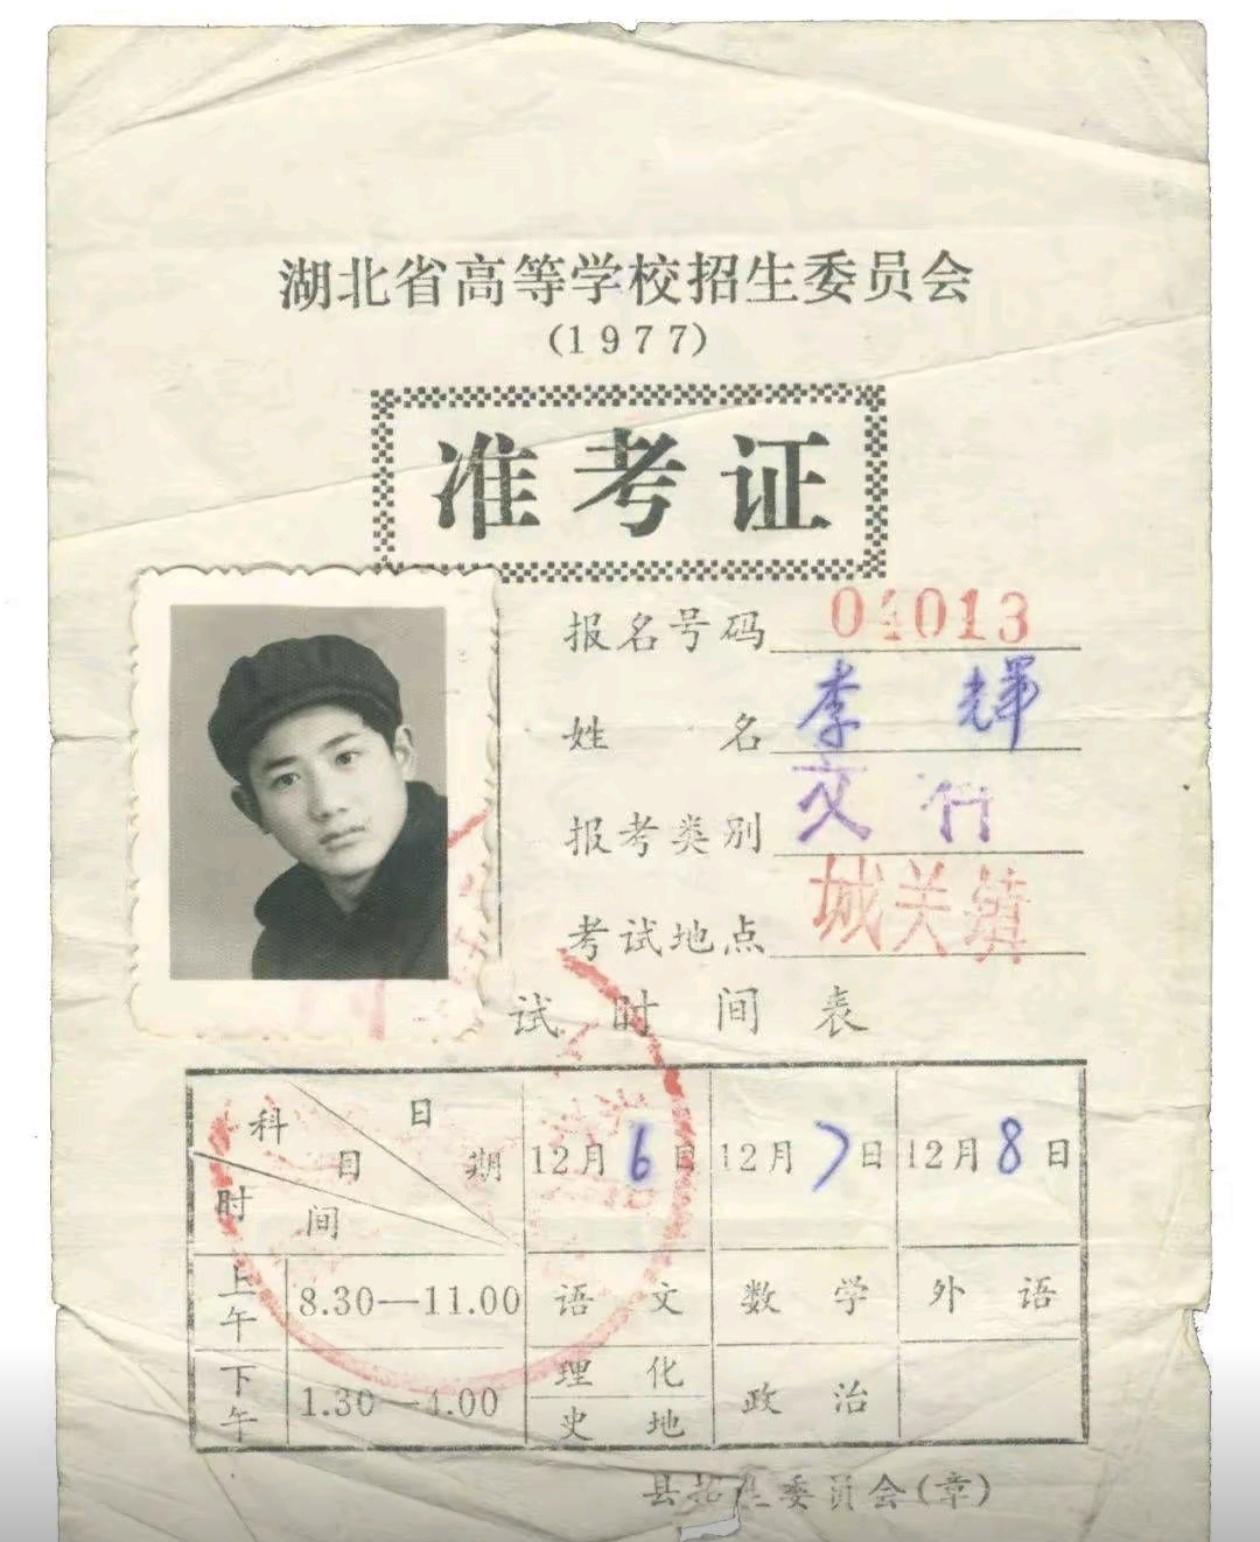 湖北省高等学校招生委员会
(1977)
准考证
报名号码 04013
姓名 李辉
报考类别
考试地点 城关镇
试时间表
科目 日期 时间 12月6日 12月7日 12月8日
上午 8.30—11.00 语文 数学 外语
下午 1.30—4.00 理化 政治
史地
县招生委员会(章)